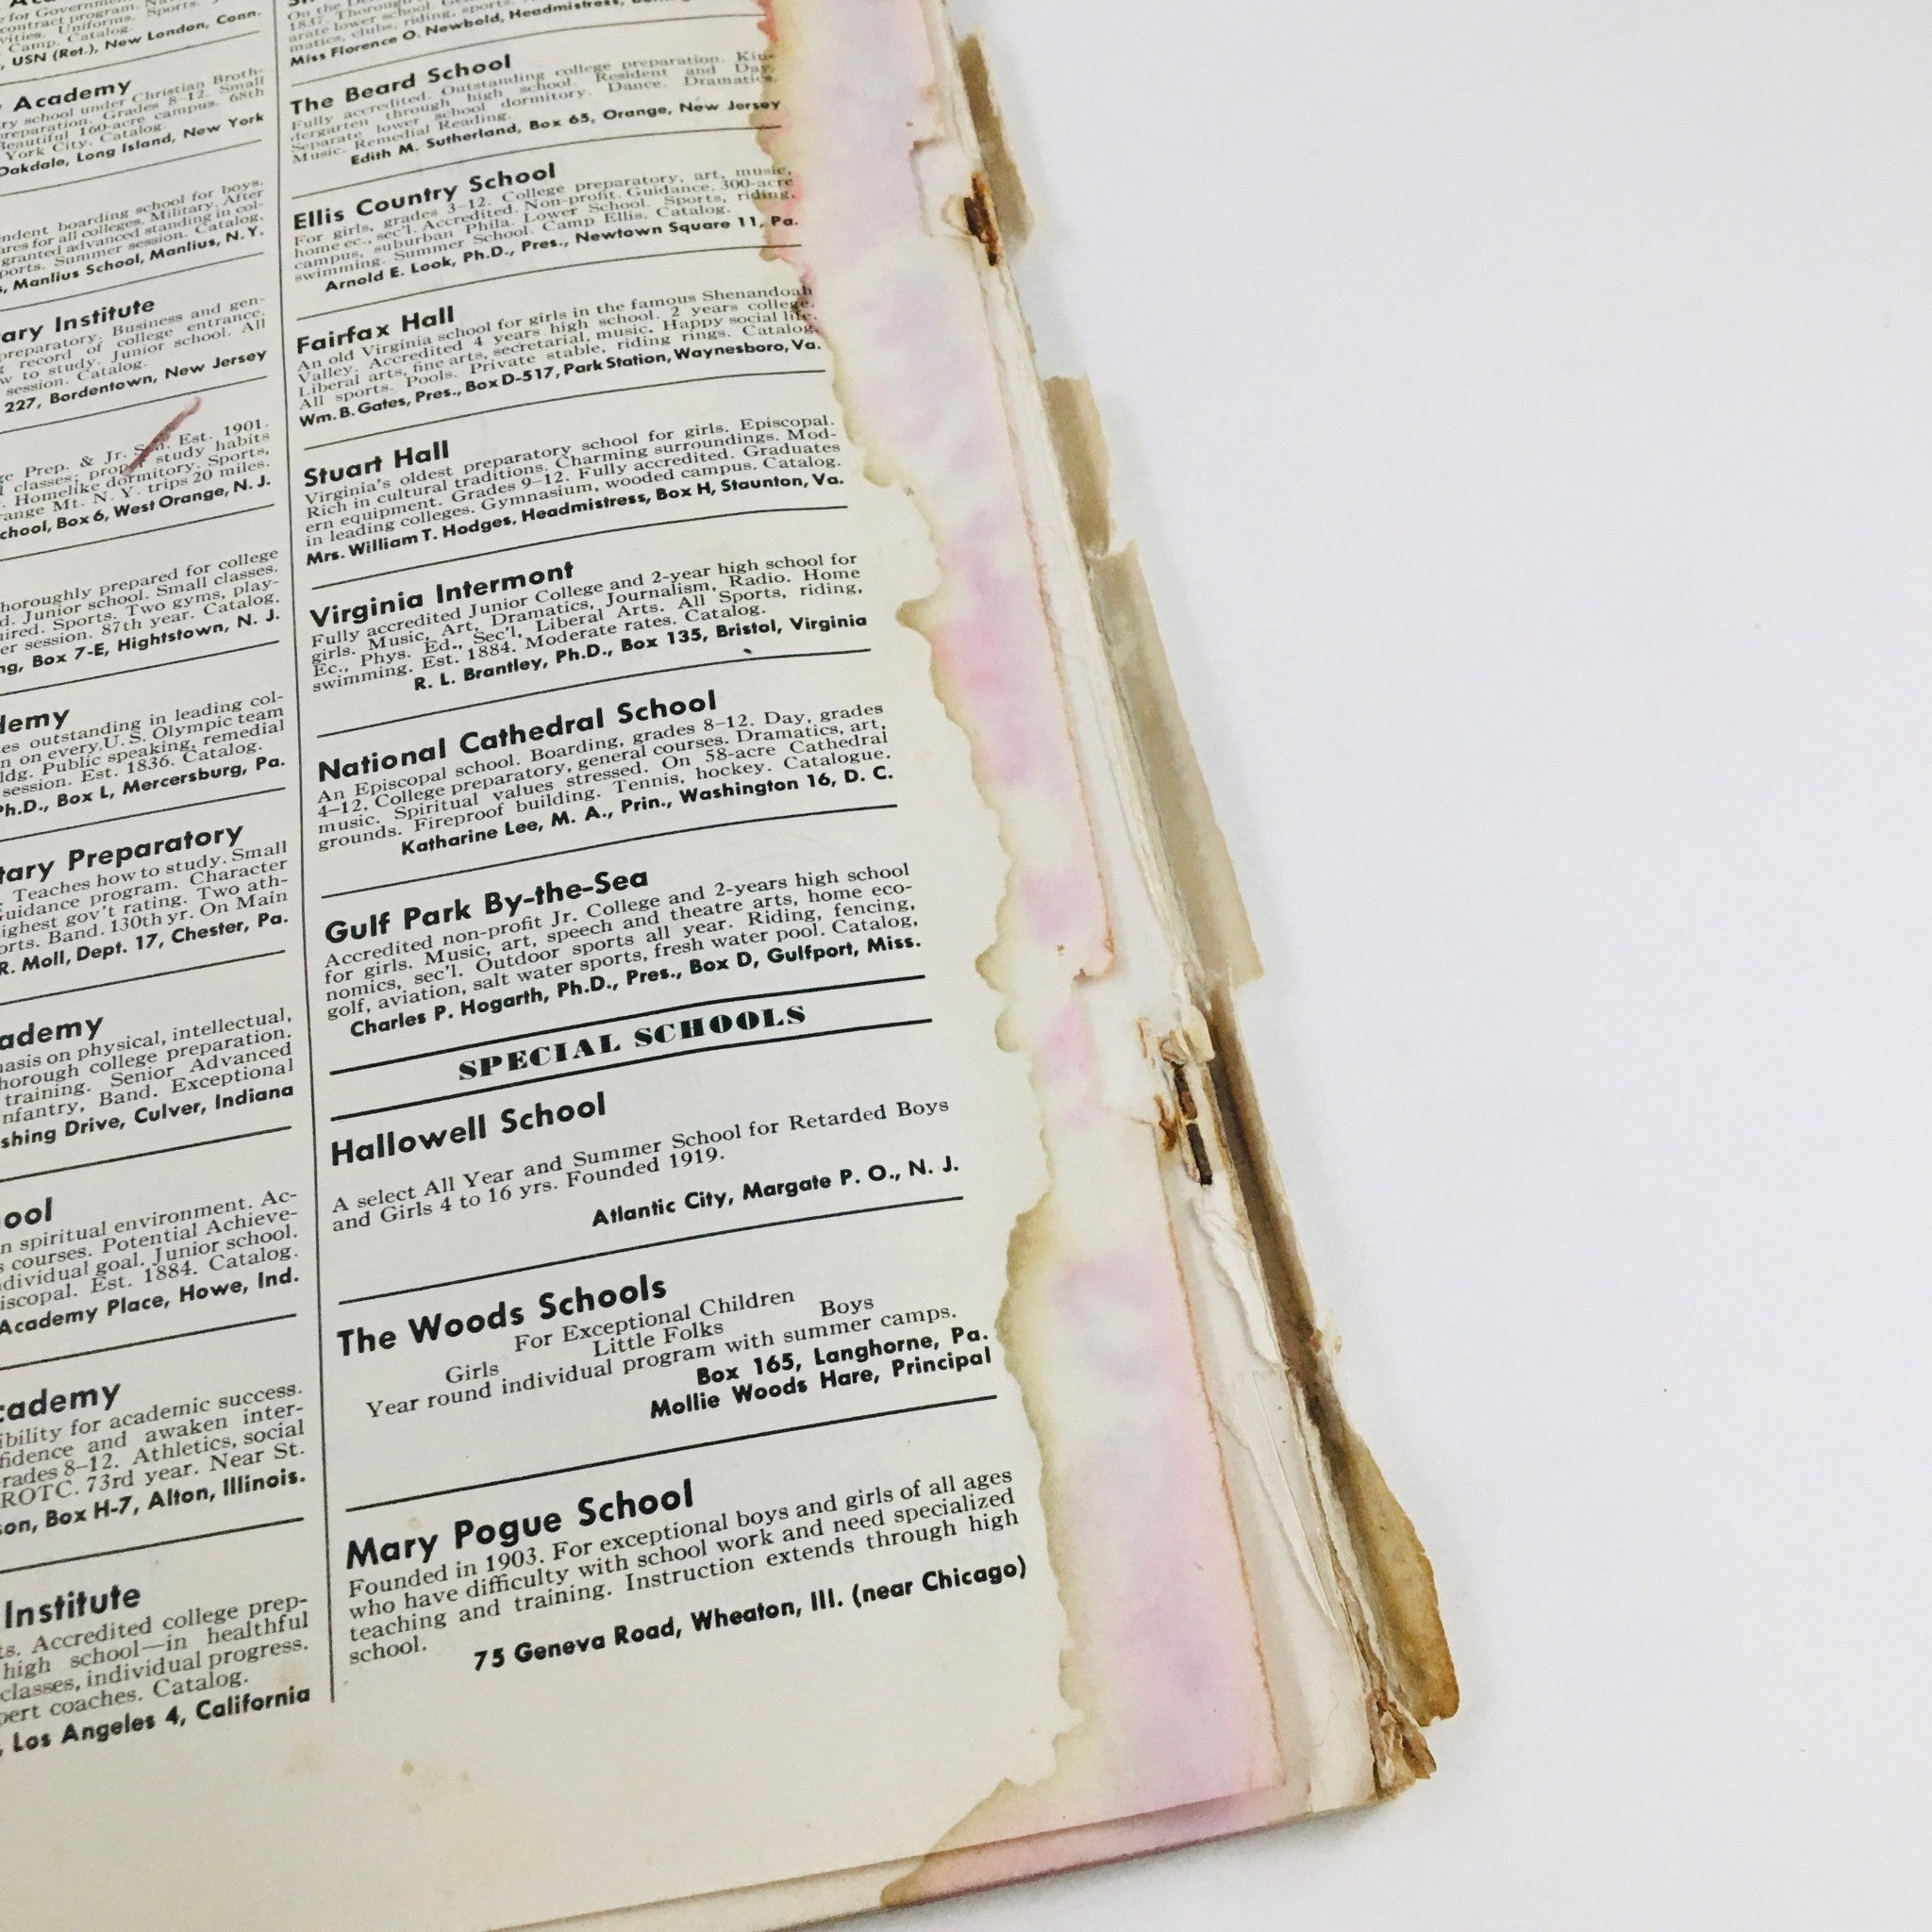 for Government
contract program.
Uniforms. Sports.
Camp. Catalog.
USN (Ret.), New London, Conn.
Academy
school under Christian Broth-
preparation. Grades 8–12. Small
Beautiful 160-acre campus. 68th
York City. Catalog.
Oakdale, Long Island, New York
boarding school for boys.
for all colleges. Military. After
granted advanced standing in col-
Summer session. Catalog.
Manlius School, Manlius, N.Y.
Institute
preparatory. Business and gen-
record of college entrance.
to study. Junior school. All
session. Catalog.
227, Bordentown, New Jersey
Prep. & Jr. Est. 1901.
classes; proper study habits
Homelike dormitory. Sports,
Mt. N. Y. trips 20 miles.
Box 6, West Orange, N. J.
thoroughly prepared for college
Junior school. Small classes.
Sports. Two gyms, play-
session. 87th year. Catalog.
Box 7-E, Hightstown, N. J.
outstanding in leading col-
on every U. S. Olympic team
Public speaking, remedial
session. Est. 1836. Catalog.
Ph.D., Box L, Mercersburg, Pa.
Preparatory
Teaches how to study. Small
Guidance program. Character
highest gov't rating. Two ath-
Band. 130th yr. On Main
R. Moll, Dept. 17, Chester, Pa.
on physical, intellectual,
thorough college preparation.
training. Senior Advanced
Infantry, Band. Exceptional
Drive, Culver, Indiana
spiritual environment. Ac-
courses. Potential Achieve-
individual goal. Junior school.
Est. 1884. Catalog.
Academy Place, Howe, Ind.
for academic success.
and awaken inter-
Grades 8–12. Athletics, social
ROTC. 73rd year. Near St.
Box H-7, Alton, Illinois.
Institute
Accredited college prep-
high school—in healthful
classes, individual progress.
coaches. Catalog.
Los Angeles 4, California
1837.
lower school.
clubs, riding, sports.
Miss Florence O. Newbold, Headmistress,
The Beard School
Fully accredited. Outstanding college preparation. Kin-
dergarten through high school. Resident and Day.
Separate lower school dormitory. Dance. Dramatics.
Music. Remedial Reading.
Edith M. Sutherland, Box 65, Orange, New Jersey
Ellis Country School
For girls, grades 3–12. College preparatory, art, music,
home ec., sec'l. Accredited. Non-profit. Guidance. 300-acre
campus, suburban Phila. Lower School. Sports, riding,
swimming. Summer School. Camp Ellis. Catalog.
Arnold E. Look, Ph.D., Pres., Newtown Square 11, Pa.
Fairfax Hall
An old Virginia school for girls in the famous Shenandoah
Valley. Accredited 4 years high school. 2 years college.
Liberal arts, fine arts, secretarial, music. Happy social life.
All sports. Pools. Private stable, riding rings. Catalog.
Wm. B. Gates, Pres., Box D-517, Park Station, Waynesboro, Va.
Stuart Hall
Virginia's oldest preparatory school for girls. Episcopal.
Rich in cultural traditions. Charming surroundings. Mod-
ern equipment. Grades 9–12. Fully accredited. Graduates
in leading colleges. Gymnasium, wooded campus. Catalog.
Mrs. William T. Hodges, Headmistress, Box H, Staunton, Va.
Virginia Intermont
Fully accredited Junior College and 2-year high school for
girls. Music, Art, Dramatics, Journalism, Radio. Home
Ec., Phys. Ed., Sec'l, Liberal Arts. All Sports, riding,
swimming. Est. 1884. Moderate rates. Catalog.
R. L. Brantley, Ph.D., Box 135, Bristol, Virginia
National Cathedral School
An Episcopal school. Boarding, grades 8–12. Day, grades
4–12. College preparatory, general courses. Dramatics, art,
music. Spiritual values stressed. On 58-acre Cathedral
grounds. Fireproof building. Tennis, hockey. Catalogue.
Katharine Lee, M. A., Prin., Washington 16, D. C.
Gulf Park By-the-Sea
Accredited non-profit Jr. College and 2-years high school
for girls. Music, art, speech and theatre arts, home eco-
nomics, sec'l. Outdoor sports all year. Riding, fencing,
golf, aviation, salt water sports, fresh water pool. Catalog,
Charles P. Hogarth, Ph.D., Pres., Box D, Gulfport, Miss.
SPECIAL SCHOOLS
Hallowell School
A select All Year and Summer School for Retarded Boys
and Girls 4 to 16 yrs. Founded 1919.
Atlantic City, Margate P. O., N. J.
The Woods Schools
For Exceptional Children
Girls Little Folks Boys
Year round individual program with summer camps.
Box 165, Langhorne, Pa.
Mollie Woods Hare, Principal
Mary Pogue School
Founded in 1903. For exceptional boys and girls of all ages
who have difficulty with school work and need specialized
teaching and training. Instruction extends through high
school.
75 Geneva Road, Wheaton, Ill. (near Chicago)